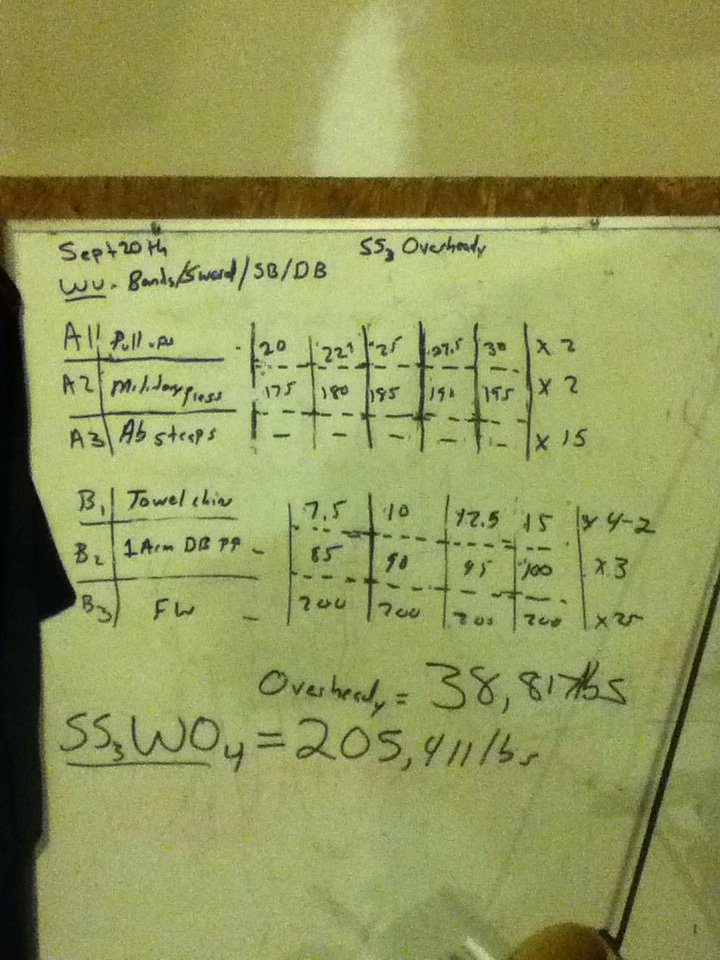 Sept 20th SS3 Overhead4
WU - Bands/Sword/SB/DB
A1 Pull-up - 20 22.5 25 27.5 30 x 2
A2 Military press 175 180 185 190 195 x 2
A3 Ab steeps - - - - - x 15
B1 Towel chin 7.5 10 12.5 15 x 4-2
B2 1 Arm DB PP - 85 90 95 100 x 3
B3 FW - 200 200 200 200 x 25
Overhead4 = 38,817lbs
SS3WO4 = 205,411lbs